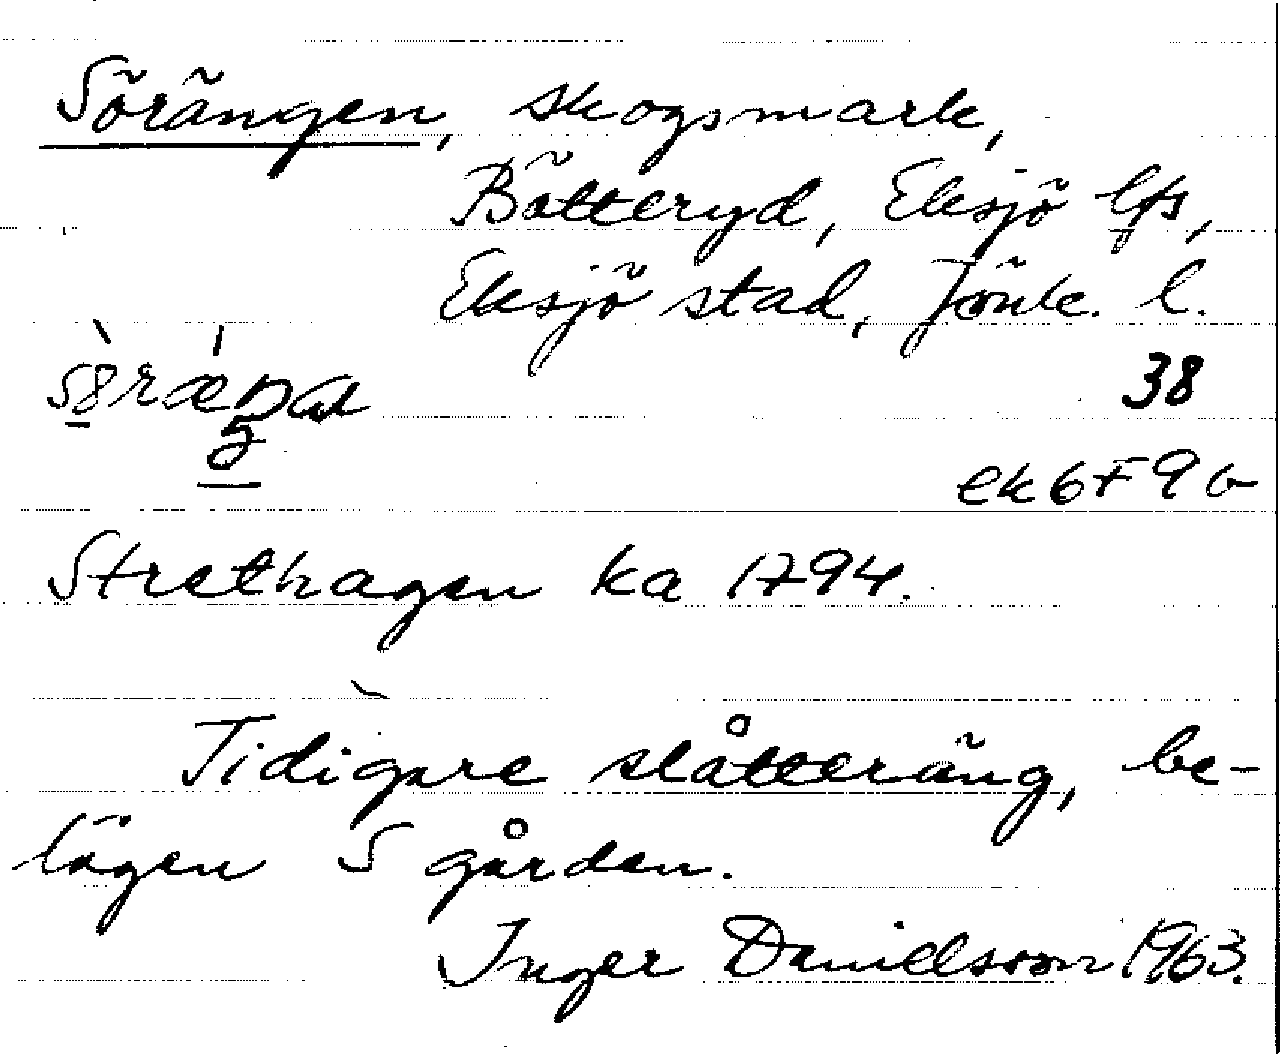 Sörängen, skogsmark,
Bätteryd, Eksjö lfs,
Eksjö stad, Jönk. l.
38
ek 6F 9b
Strethagen ka 1794.
Tidigare slåtteräng, be-
lägen S gården.
Inger Danielsson 1963.